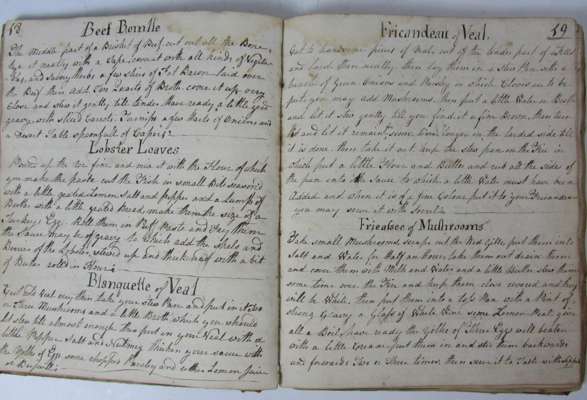 58
Beef Bouille
The Middle part of a Brisket of Beef cut out all the Bone
tye it neatly with a Tape, cover it with all kinds of
and Savory herbs a few slices of Fat Bacon laid over
the Beef then add Two Quarts of Broth cover it up very
Close and stew it gently till tender have ready a little good
gravy with Sliced Carrots Turnips a few Heads of Onions and
a Desert Table spoonfull of Capers
Lobster Loaves
Pound up the fine and mix it with the Flour of which
you make the paste cut the Fish in small Bits seasoned
with a little grated Lemon Salt and Pepper and a Lump of
Butter with a little grated Bread make them the size of a
Turkeys Egg Roll them in Puff Paste and Fry them
the Sauce may be of gravy to which add the Shels and
of the Lobster stewed up and thickened with a bit
of Butter rolled in Flour
Blanquette of Veal
Cut the Veal very thin take your Stew Pan and put in it two
or Three Mushrooms and a little Broth which you should
let stew till almost enough then put in your Veal with a
little Pepper Salt and Nutmeg thicken your sauce with
the Yolks of Eggs some chopped Parsley and a little Lemon juice
59
Fricandeau of Veal
Cut handsome pieces of Veal out of the tender part of a
and Lard them neatly then lay them in a Stew Pan with a
bunch of Green Onions and Parsley in which Cloves are to be
put you may add Mushrooms, then put a little Water or Broth
and let it stew gently till you find it a fine Brown, then turn
it and let it remain some time longer in the larded side till
it is done then take it out and put the stew pan on the Fire in
which put a little Flour and Butter and rub all the side of
the pan into the Sauce to which a little Water must have been
Added and when it is of a fine Colour put it to your Fricandeau
you may serve it with Sorrel
Fricassee of Mushrooms
Take small Mushrooms, scrape out the Red Gills put them into
Salt and Water for Half an hour, take them out drain them
and cover them with Milk and Water and a little Butter stew them
some time over the Fire and keep them close covered and they
will be White, then put them into a Pan with a Pint of
strong Gravy a Glass of White Wine some Lemon Peel give
all a Boil, have ready the Yolks of Three Eggs well beaten
with a little Cream, put them in and stir them backwards
and forwards Two or Three times, then serve it to Table with Sippets